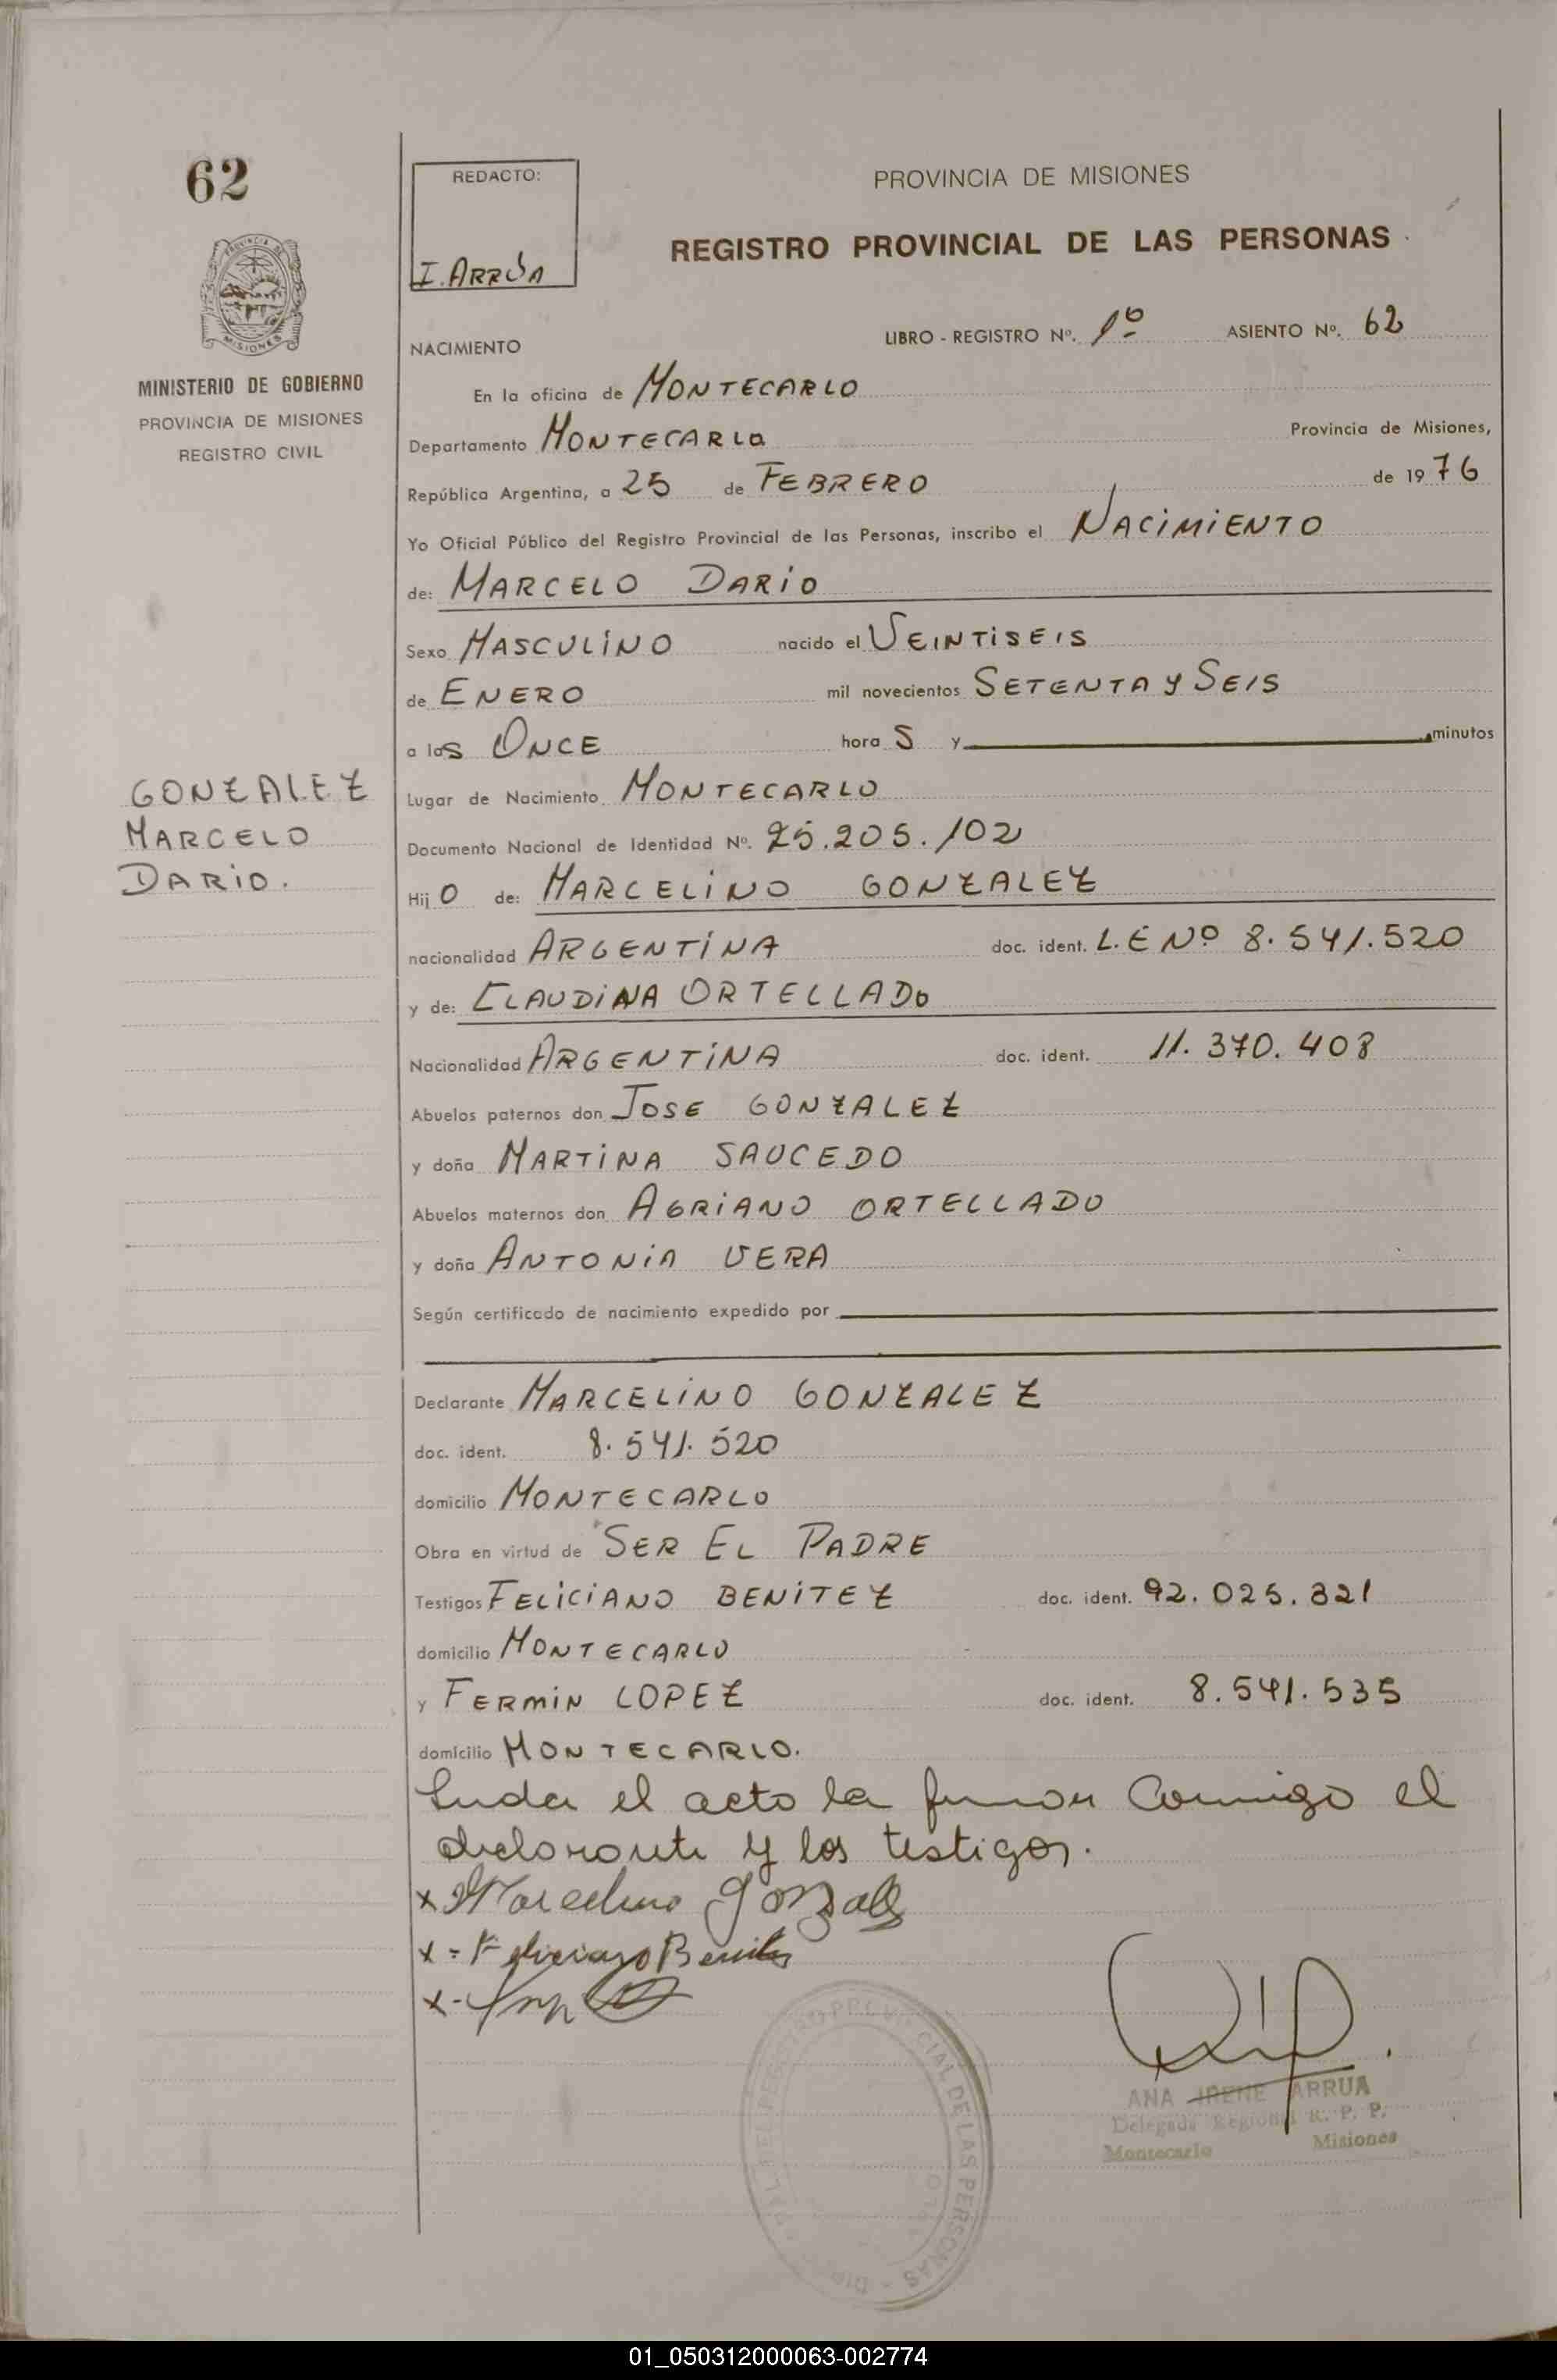 62
REDACTO:
I. ARRÚA
PROVINCIA DE MISIONES
REGISTRO PROVINCIAL DE LAS PERSONAS
MISIONES
MINISTERIO DE GOBIERNO
PROVINCIA DE MISIONES
REGISTRO CIVIL
NACIMIENTO
LIBRO - REGISTRO Nº. 1º ASIENTO Nº. 62
En la oficina de MONTECARLO
Departamento MONTECARLO Provincia de Misiones,
República Argentina, a 25 de FEBRERO de 1976
Yo Oficial Público del Registro Provincial de las Personas, inscribo el NACIMIENTO
de: MARCELO DARIO
Sexo MASCULINO nacido el VEINTISEIS
de ENERO mil novecientos SETENTA Y SEIS
a las ONCE hora S y minutos
GONZALEZ
MARCELO
DARIO.
Lugar de Nacimiento MONTECARLO
Documento Nacional de Identidad Nº. 25.205.102
Hij O de: MARCELINO GONZALEZ
nacionalidad ARGENTINA doc. ident. L.E Nº 8.541.520
y de: CLAUDINA ORTELLADO
Nacionalidad ARGENTINA doc. ident. 11.370.408
Abuelos paternos don JOSE GONZALEZ
y doña MARTINA SAUCEDO
Abuelos maternos don AGRIANO ORTELLADO
y doña ANTONIA VERA
Según certificado de nacimiento expedido por
Declarante MARCELINO GONZALEZ
doc. ident. 8.541.520
domicilio MONTECARLO
Obra en virtud de SER EL PADRE
Testigos FELICIANO BENITEZ doc. ident. 92.025.321
domicilio MONTECARLO
y FERMIN LOPEZ doc. ident. 8.541.535
domicilio MONTECARLO.
Leida el acto la firman Conmigo el
declarante y los testigos.
x Marcelino Gonzalez
x - Feliciano Benitez
x -
ANA IRENE ARRUA
Delegada Regional R. P. P.
Montecarlo Misiones
DEL REGISTRO PROVINCIAL DE LAS PERSONAS - DIR
01_050312000063-002774